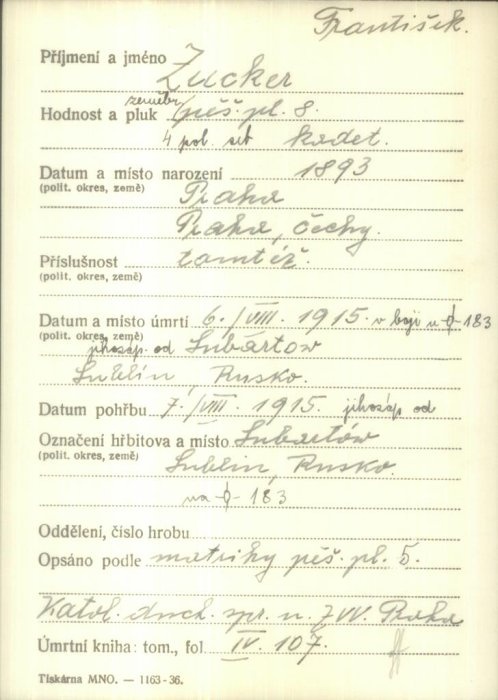 František.
Příjmení a jméno Zucker
Hodnost a pluk zeměbr. pěš. pl. 8.
4 pol. set kadet.
Datum a místo narození 1893
(polit. okres, země) Praha
Praha, Čechy.
Příslušnost tamtéž.
(polit. okres, země)
Datum a místo úmrtí 6./VIII. 1915. v boji u 183
(polit. okres, země) jihozáp. od Lubartow
Lublin, Rusko.
Datum pohřbu 7./VIII. 1915. jihozáp od
Označení hřbitova a místo Lubartów
(polit. okres, země) Lublin, Rusko.
na 183
Oddělení, číslo hrobu
Opsáno podle matriky pěš. pl. 5.
Katol. duch. spr. u ZVV. Praha
Úmrtní kniha: tom., fol. IV. 107.
Tiskárna MNO. — 1163-36.